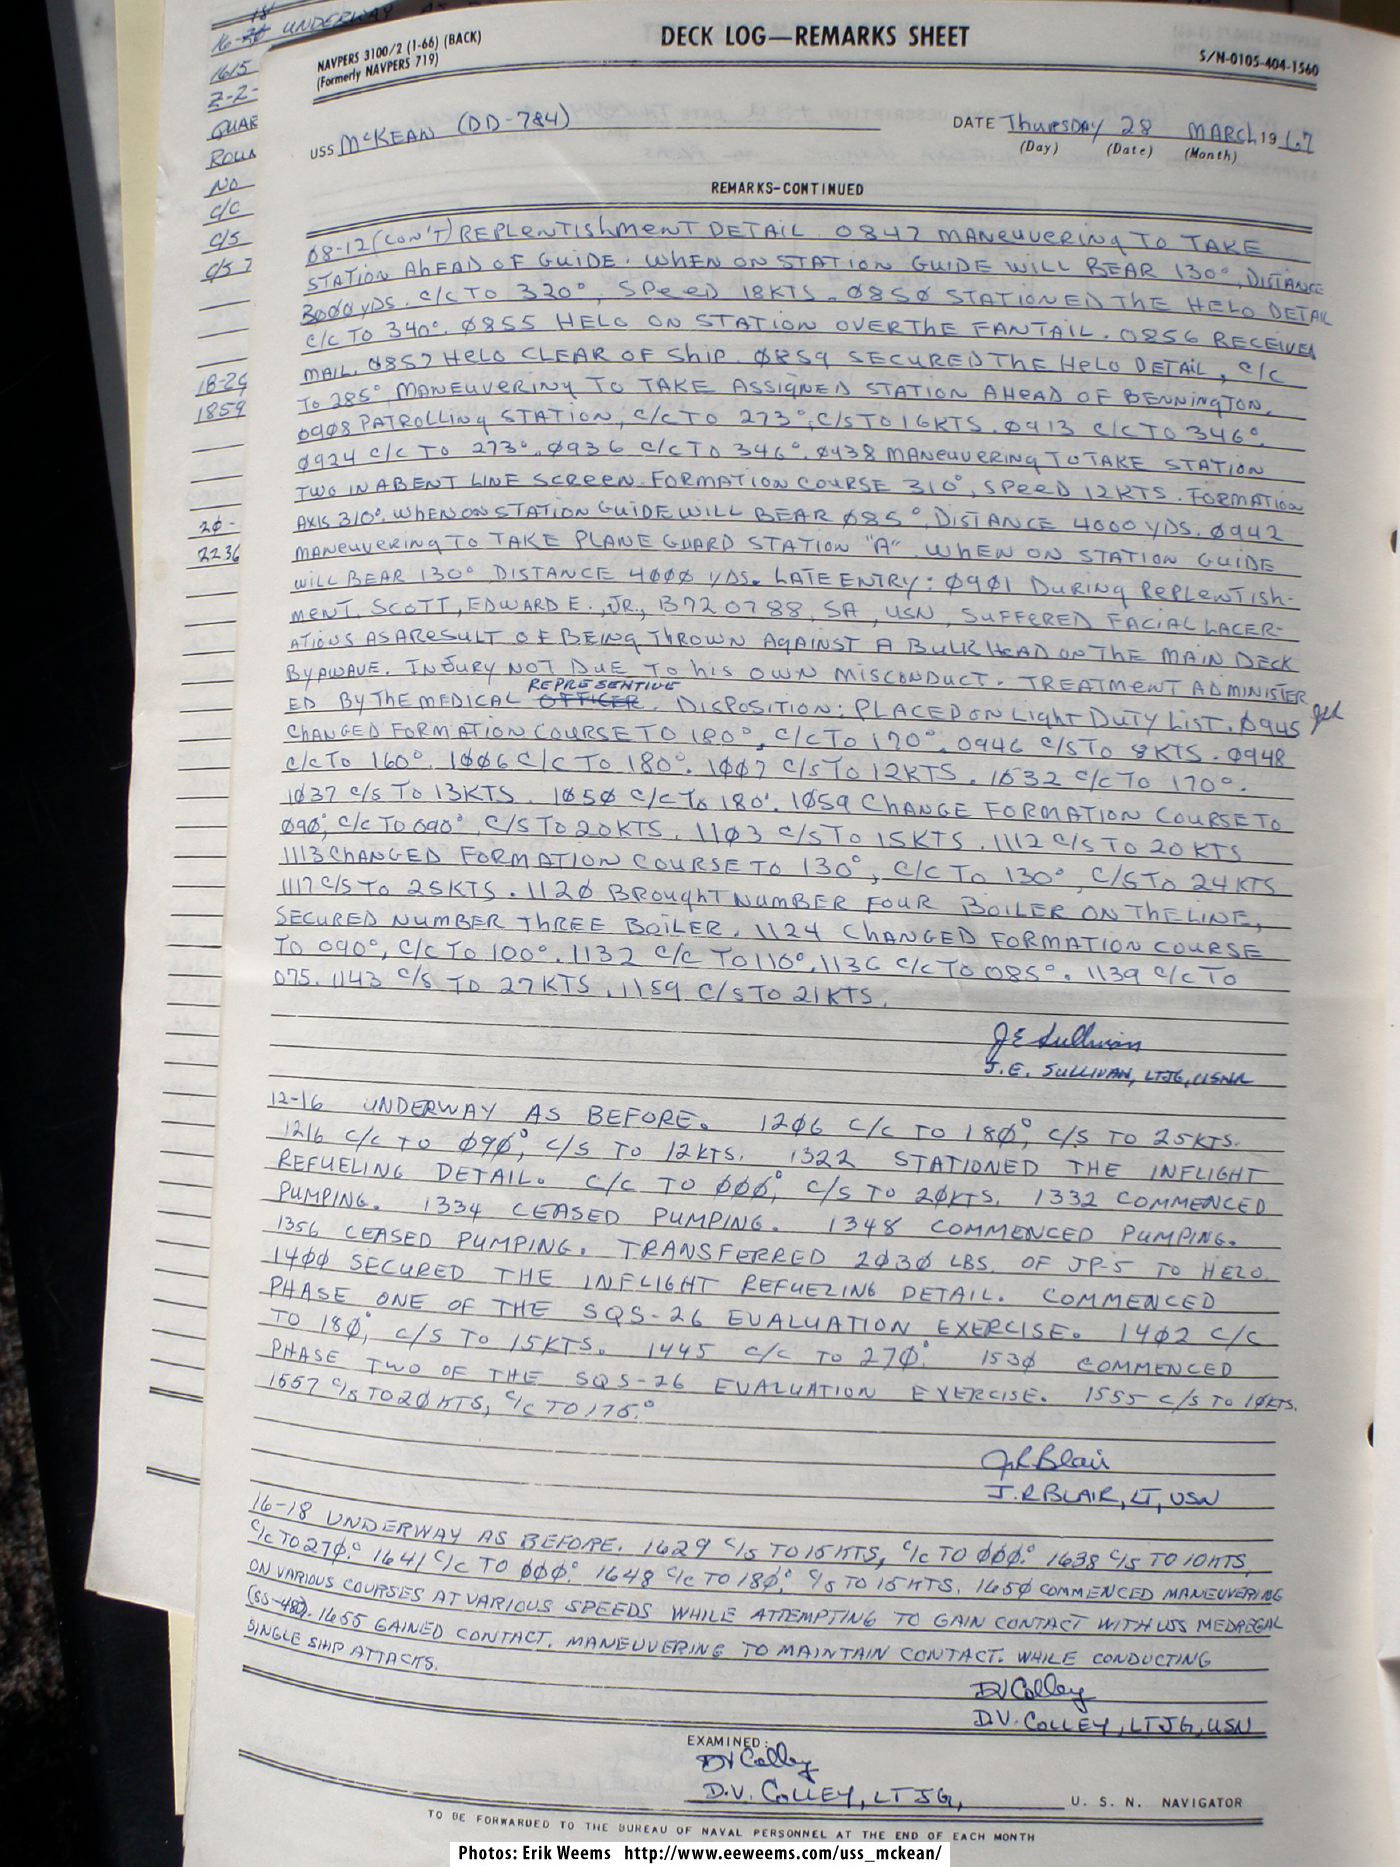 16-20 UNDERWAY AS
1615
Z-2-
QUAR
ROUN
NO
C/C
C/S
C/S 2
18-20
1859
20-
2236
NAVPERS 3100/2 (1-66) (BACK)
(Formerly NAVPERS 719)
DECK LOG—REMARKS SHEET
S/N-0105-404-1560
USS McKEAN (DD-784)
DATE THURSDAY 28 MARCH 1967
(Day) (Date) (Month)
REMARKS-CONTINUED
08-12 (CON'T) REPLENTISHMENT DETAIL. 0847 MANEUVERING TO TAKE
STATION AHEAD OF GUIDE. WHEN ON STATION GUIDE WILL BEAR 130°, DISTANCE
3000 YDS. C/C TO 320°, SPEED 18KTS. 0850 STATIONED THE HELO DETAIL
C/C TO 340°. 0855 HELO ON STATION OVER THE FANTAIL. 0856 RECEIVED
MAIL. 0857 HELO CLEAR OF SHIP. 0859 SECURED THE HELO DETAIL, C/C
TO 285°, MANEUVERING TO TAKE ASSIGNED STATION AHEAD OF BENNINGTON.
0908 PATROLLING STATION, C/C TO 273°, C/S TO 16KTS. 0913 C/C TO 346°.
0924 C/C TO 273°. 0936 C/C TO 346°. 0938 MANEUVERING TO TAKE STATION
TWO IN A BENT LINE SCREEN. FORMATION COURSE 310°, SPEED 12KTS. FORMATION
AXIS 310°. WHEN ON STATION GUIDE WILL BEAR 085°, DISTANCE 4000 YDS. 0942
MANEUVERING TO TAKE PLANE GUARD STATION "A". WHEN ON STATION GUIDE
WILL BEAR 130° DISTANCE 4000 YDS. LATE ENTRY: 0901 DURING REPLENTISH-
MENT, SCOTT, EDWARD E., JR., B72 07 88, SA, USN, SUFFERED FACIAL LACER-
ATIONS AS A RESULT OF BEING THROWN AGAINST A BULKHEAD ON THE MAIN DECK
BY A WAVE. INJURY NOT DUE TO HIS OWN MISCONDUCT. TREATMENT ADMINISTER
ED BY THE MEDICAL OFFICER REPRESENTIVE. DISPOSITION: PLACED ON LIGHT DUTY LIST. 0945
CHANGED FORMATION COURSE TO 180°, C/C TO 170°. 0946 C/S TO 8KTS. 0948
C/C TO 160°. 1006 C/C TO 180°. 1007 C/S TO 12KTS. 1032 C/C TO 170°.
1037 C/S TO 13KTS. 1050 C/C TO 180°. 1059 CHANGE FORMATION COURSE TO
090°, C/C TO 090°, C/S TO 20KTS. 1103 C/S TO 15KTS. 1112 C/S TO 20 KTS
1113 CHANGED FORMATION COURSE TO 130°, C/C TO 130°, C/S TO 24KTS
1117 C/S TO 25KTS. 1120 BROUGHT NUMBER FOUR BOILER ON THE LINE,
SECURED NUMBER THREE BOILER. 1124 CHANGED FORMATION COURSE
TO 090°, C/C TO 100°. 1132 C/C TO 110°. 1136 C/C TO 085°. 1139 C/C TO
075. 1143 C/S TO 27KTS. 1159 C/S TO 21KTS.
JE Sullivan
J.E. SULLIVAN, LTJG, USNR
12-16 UNDERWAY AS BEFORE. 1206 C/C TO 180°, C/S TO 25KTS.
1216 C/C TO 090°, C/S TO 12KTS. 1322 STATIONED THE INFLIGHT
REFUELING DETAIL. C/C TO 000°, C/S TO 20KTS. 1332 COMMENCED
PUMPING. 1334 CEASED PUMPING. 1348 COMMENCED PUMPING.
1356 CEASED PUMPING. TRANSFERRED 2030 LBS. OF JP-5 TO HELO.
1400 SECURED THE INFLIGHT REFUELING DETAIL. COMMENCED
PHASE ONE OF THE SQS-26 EVALUATION EXERCISE. 1402 C/C
TO 180°, C/S TO 15KTS. 1445 C/C TO 270°. 1530 COMMENCED
PHASE TWO OF THE SQS-26 EVALUATION EXERCISE. 1555 C/S TO 10KTS.
1557 C/S TO 20 KTS, C/C TO 175°
JR Blair
J.R BLAIR, LT, USN
16-18 UNDERWAY AS BEFORE. 1629 C/S TO 15 KTS, C/C TO 000°. 1638 C/S TO 10KTS,
C/C TO 270°. 1641 C/C TO 000°. 1648 C/C TO 180°, C/S TO 15 KTS. 1650 COMMENCED MANEUVERING
ON VARIOUS COURSES AT VARIOUS SPEEDS WHILE ATTEMPTING TO GAIN CONTACT WITH USS MEDREGAL
(SS-480). 1655 GAINED CONTACT. MANEUVERING TO MAINTAIN CONTACT. WHILE CONDUCTING
SINGLE SHIP ATTACKS.
DV Colley
D.V. COLLEY, LTJG, USN
EXAMINED:
DV Colley
D.V. COLLEY, LTJG, U. S. N. NAVIGATOR
TO BE FORWARDED TO THE BUREAU OF NAVAL PERSONNEL AT THE END OF EACH MONTH
Photos: Erik Weems http://www.eeweems.com/uss_mckean/